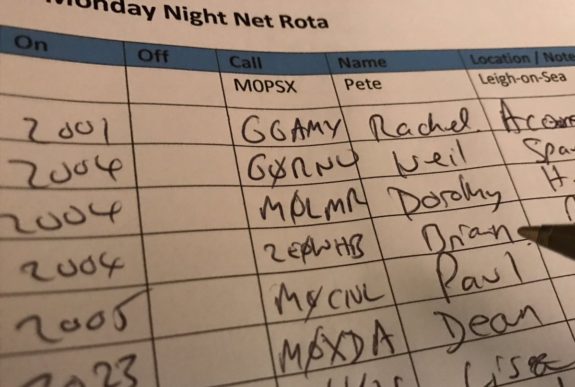 Monday Night Net Rota
On Off Call Name Location / Note
M0PSX Pete Leigh-on-Sea
2001 GGAMY Rachel
2004 GØRNU Neil Spa
2004 MØLMR Dorothy H.
2004 2EØWHB Brian
2005 MØCNL Paul
2023 MØXDA Dean